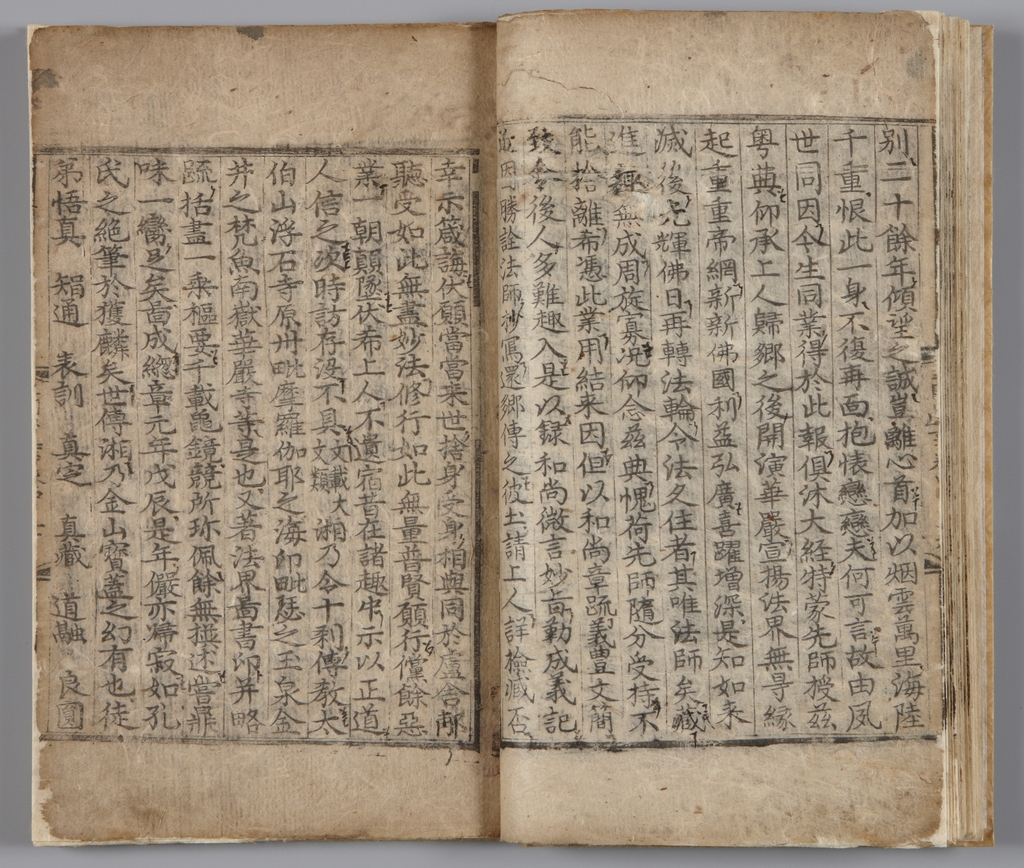 別二十餘年傾望之誠豈離心首加以烟雲萬里海陸
千重恨此一身不復再面抱懐戀戀夫何可言故由夙
世同因今生同業得於此報俱沐大経特蒙先師授茲
粤典仰承上人歸郷之後開演華嚴宣揚法界無㝵縁
起重重帝網新新佛國利益弘廣喜躍増深是知如来
滅後光輝佛日再轉法輪令法久住者其唯法師矣蔵
進趣無成周旋寡况仰念茲典愧荷先師隨分受持不
能捨離希憑此業用結来因但以和尚章疏義豊文簡
致令後人多難趣入是以録和尚微言妙旨勤成義記
近因勝詮法師抄寫還郷傳之彼土請上人詳撿臧否
幸示箴誨伏願當當来世捨身受身相與同於盧舎那
聽受如此無盡妙法修行如此無量普賢願行儻餘惡
業一朝顛墜伏希上人不貴宿昔在諸趣中示以正道
人信之次時訪存没不具文載大文類湘乃令十刹傳敎太
伯山浮石寺原州毗摩羅伽耶之海印毗瑟之玉泉金
井之梵魚南嶽華嚴寺等是也又著法界啚書印并略
疏括盡一乘樞要千載龜鏡競所珎佩餘無撰述嘗鼎
味一臠足矣啚成緫章元年戊辰是年儼亦歸寂如孔
氏之絶筆於獲麟矣世傳湘乃金山寳盖之幻有也徒
弟悟真　智通　表訓　真定　真藏　道融　良圓